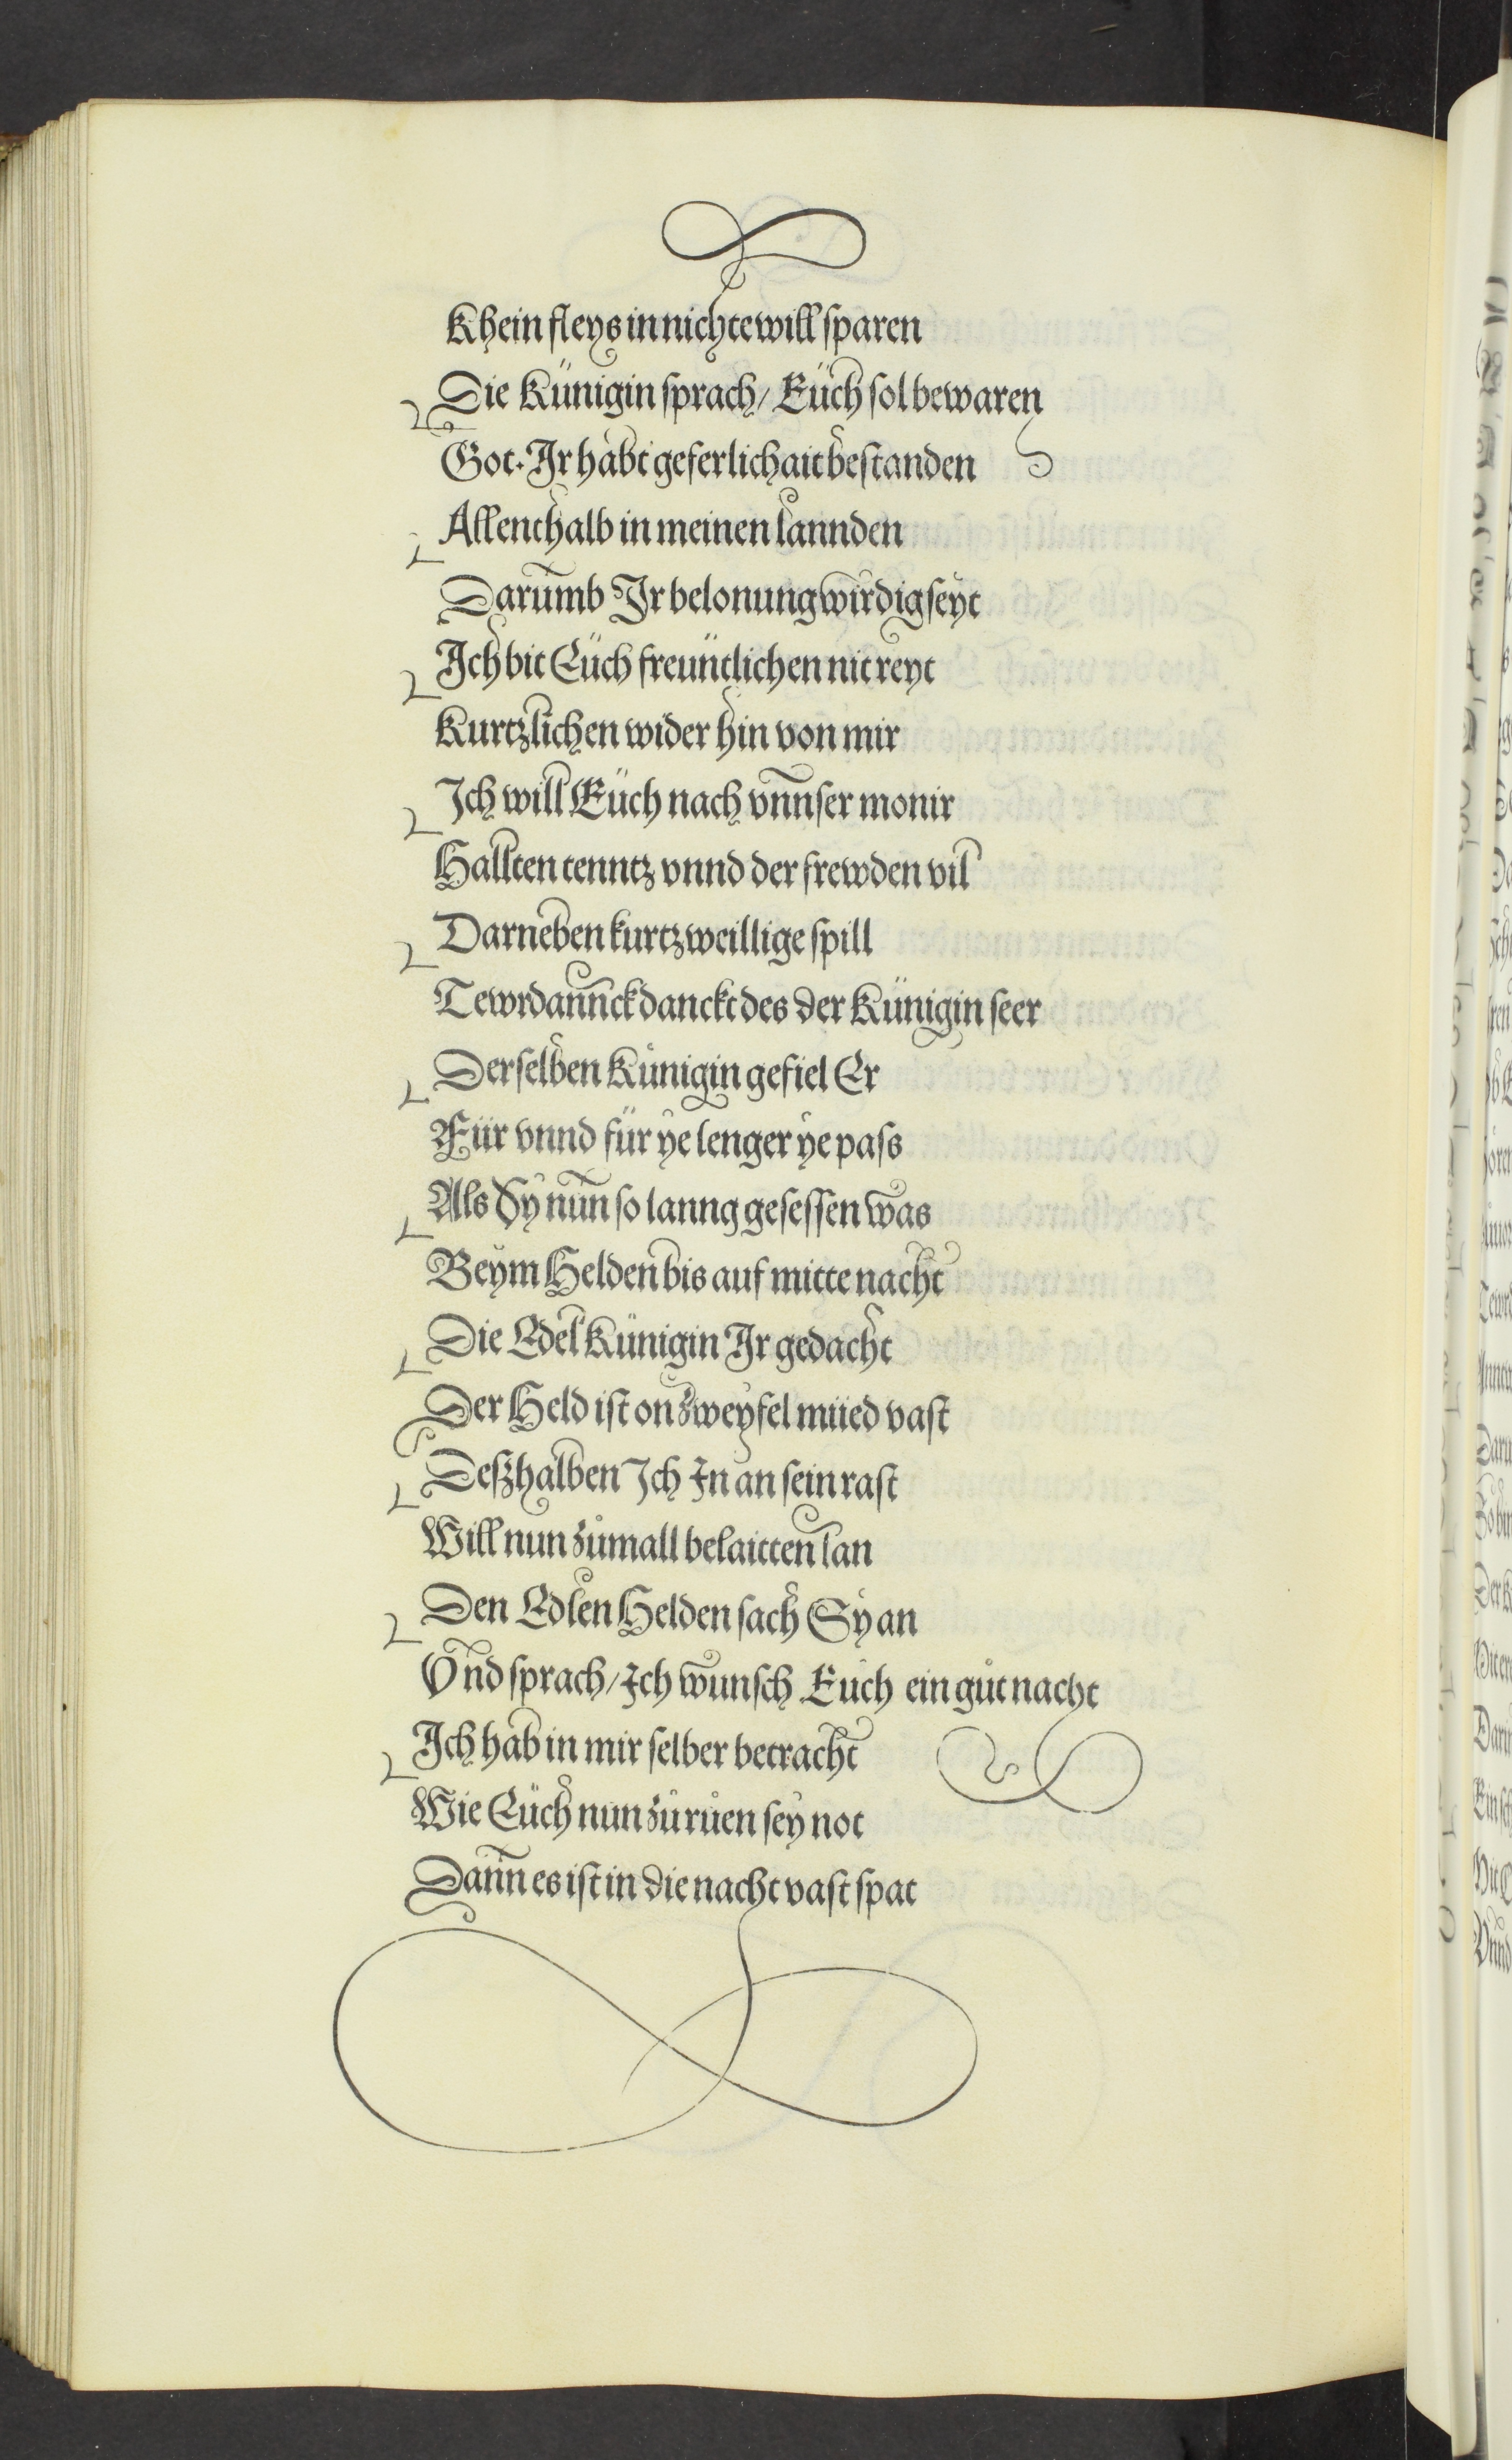 Khein fleys in nichte will sparen
Die Künigin sprach/ Eüch sol bewaren
Got. Ir habt geferlichait bestanden
Allenthalb in meinen lannden
Darumb Ir belonung wirdig seyt
Ich bit Eüch freüntlichen nit reyt
Kurtzlichen wider hin von mir
Ich will Eüch nach vnnser monir
Hallten tenntz vnnd der frewden vil
Darneben kurtzweillige spill
Tewrdannck danckt des der Künigin seer
Derselben Künigin gefiel Er
Für vnnd für ye lenger ye pass
Als Sy nun so lanng gesessen was
Beym Helden bis auf mitte nacht
Die Edel Künigin Ir gedacht
Der Held ist on zweyfel müed vast
Deßhalben Ich In an sein rast
Will nun zůmall belaitten lan
Den Edlen Helden sach Sy an
Vnd sprach/ Ich wunsch Euch ein gůt nacht
Ich hab in mir selber betracht
Wie Eüch nun zů rüen sey not
Dann es ist in die nacht vast spat